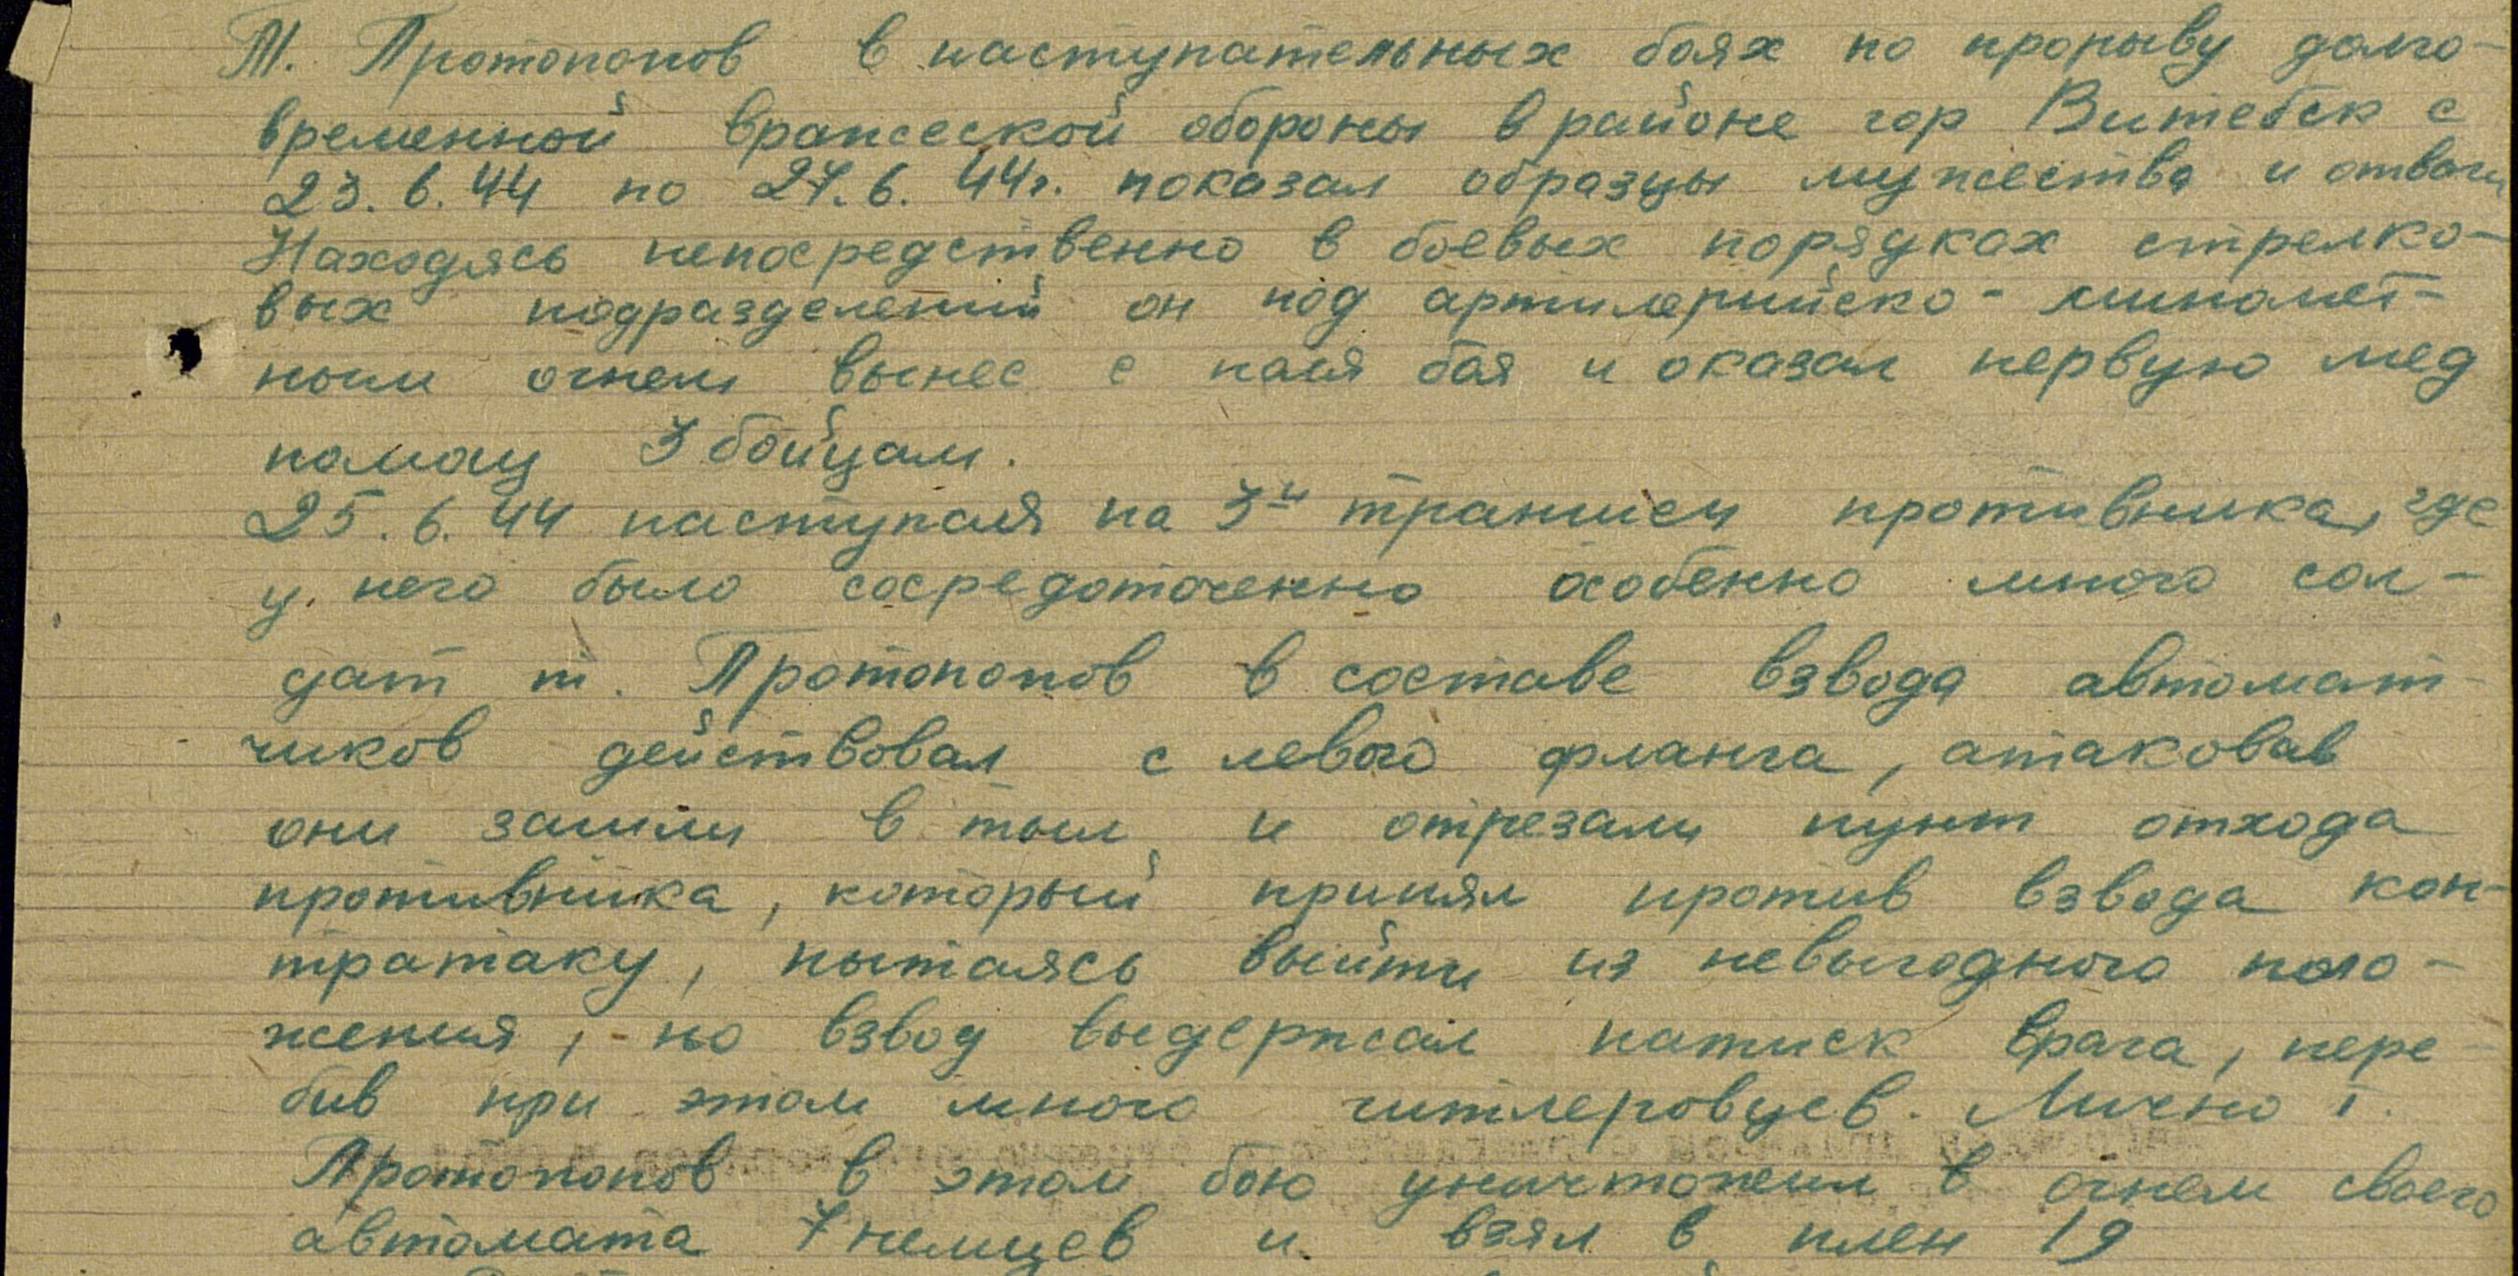 Т. Протопопов в наступательных боях по прорыву долго-
временной вражеской обороны в районе гор Витебск с
23.6.44 по 27.6.44г. показал образцы мужества и отваги
Находясь непосредственно в боевых порядках стрелко-
вых подразделений он под артилерийско-миномет-
ным огнем вынес с поля боя и оказал первую мед
помощ 3 бойцам.
25.6.44 наступая на 3й траншеи противника, где
у него было сосредоточенно особенно много сол-
дат т. Протопопов в составе взвода автомат-
чиков действовал с левого фланга, атаковав
они зашли в тыл и отрезали пункт отхода
противника, который принял против взвода кон-
тратаку, пытаясь выйти из невыгодного поло-
жения, но взвод выдержал натиск врага, пере-
бив при этом много гитлеровцев. Лично т.
Протопопов в этом бою уничтожил в огнем своего
автомата 7 немцев и взял в плен 19